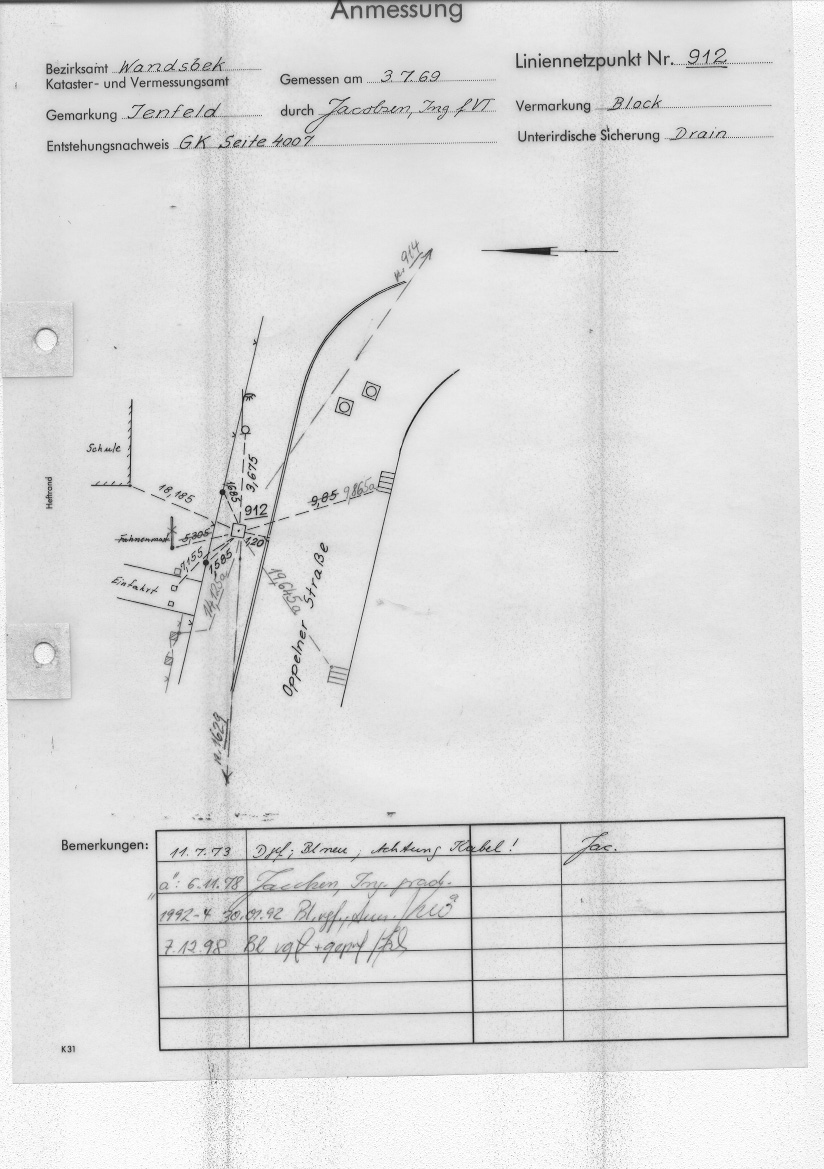 Anmessung
Bezirksamt Wandsbek
Kataster- und Vermessungsamt
Gemessen am 3.7.69
Liniennetzpunkt Nr. 912
Gemarkung Jenfeld
durch Jacobsen, Ing f VT
Vermarkung Block
Entstehungsnachweis GK Seite 4007
Unterirdische Sicherung Drain
n. 914
Schule
18,185
1,685
3,675
912
9,85 9,865a
Fahnenmast
5,305
1,20
7,155
1,595
Einfahrt
14,125a
19,645a
Oppelner Straße
n. 1629
Heftrand
Bemerkungen:
11.7.73 Bl neu, Achtung Kabel! Jac.
"a": 6.11.78 Jacobsen, Ing. grad.
1992-4 30.01.92
7.12.98 Bl vgf + gepr
K31